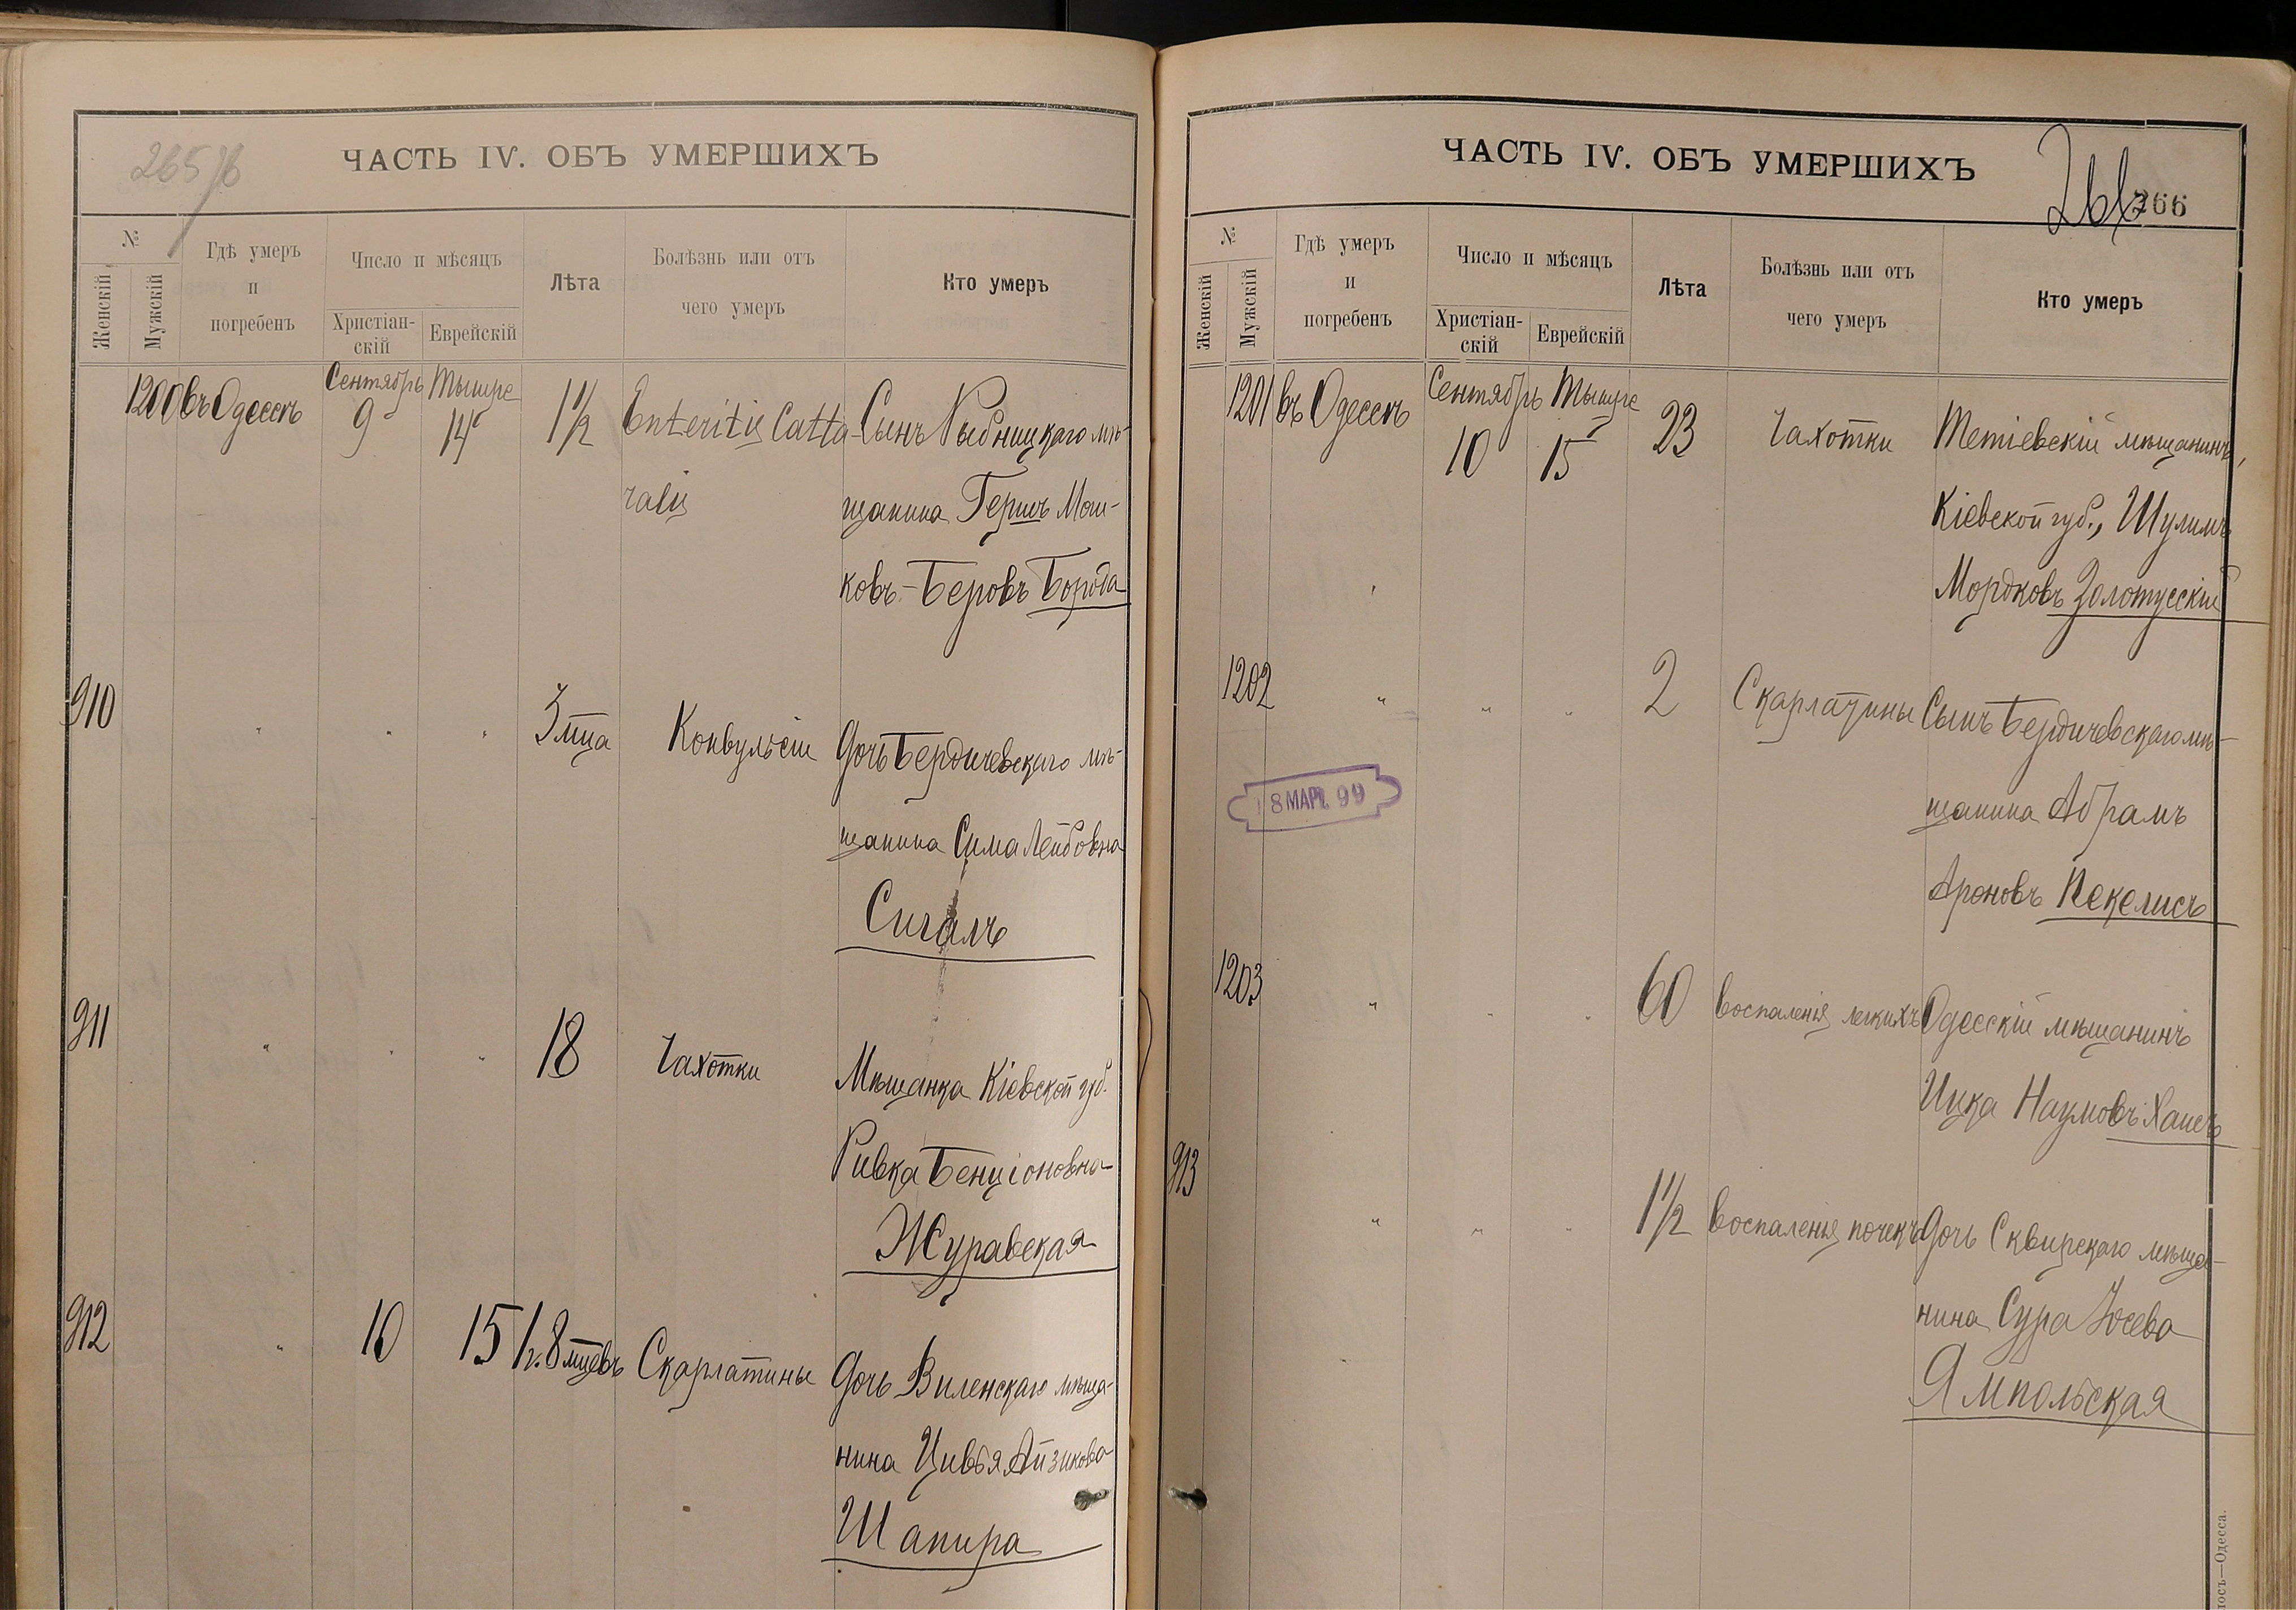 265 об
ЧАСТЬ IV. ОБЪ УМЕРШИХЪ
№
Женскій
Мужскій
Гдѣ умеръ
и
погребенъ
Число и мѣсяцъ
Христіан-
скій
Еврейскій
Лѣта
Болѣзнь или отъ
чего умеръ
Кто умеръ
Сентябрь Тышре
1200 въ Одессѣ 9 14 1½ Enteritis Catta- Сынъ Рыбницкаго мѣ-
ralis щанина Гершъ Мош-
ковъ-Беровъ Борода
910 " " " 3 мца Конвульсіи Дочь Бердичевскаго мѣ-
щанина Сима Лейбовна
Сигалъ
911 " " " 18 Чахотки Мѣщанка Кіевской губ.
Ривка Бенціоновна
Журавская
912 " 10 15 1 г. 8 мцевъ Скарлатины Дочь Виленскаго мѣща-
нина Цивья Айзикова
Шапира
ЧАСТЬ IV. ОБЪ УМЕРШИХЪ
266
№
Женскій
Мужскій
Гдѣ умеръ
и
погребенъ
Число и мѣсяцъ
Христіан-
скій
Еврейскій
Лѣта
Болѣзнь или отъ
чего умеръ
Кто умеръ
Сентябрь Тышре
1201 въ Одессѣ 10 15 23 Чахотки Тетіевскій мѣщанинъ,
Кіевской губ., Шулимъ
Мордковъ Золотусскій
1202 " " " 2 Скарлатины Сынъ Бердичевскаго мѣ-
щанина Абрамъ
Ароновъ Пекелисъ
8 МАР. 99
1203 " " " 60 Воспаленія легкихъ Одесскій мѣщанинъ
Ицка Наумовъ Хаисъ
913 " " " 1½ Воспаленія почекъ Дочь Сквирскаго мѣща-
нина Сура Іосева
Ямпольская
—Одесса.